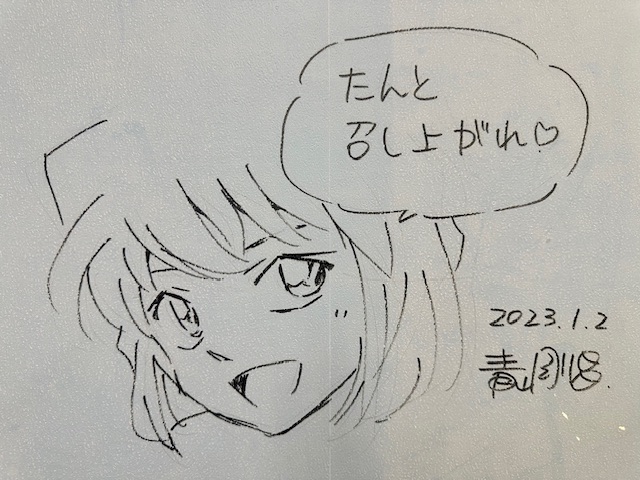 たんと
召し上がれ♡
2023.1.2
青山剛昌